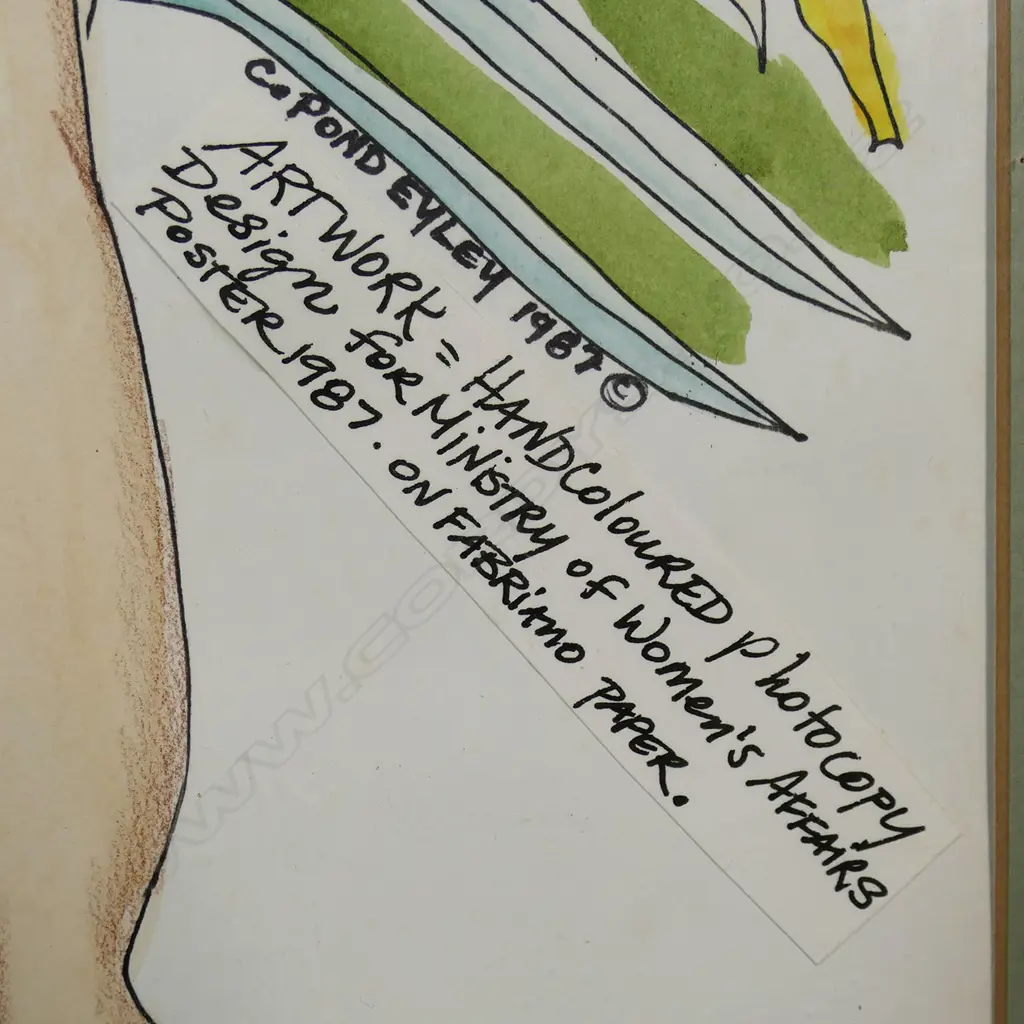 C. POND EYLEY 1987 ©
ARTWORK = HANDColoURED photocopy
Design for MiNiSTRY of Women's AFFAiRS
POSTER 1987. ON FABRiANO PAPER.